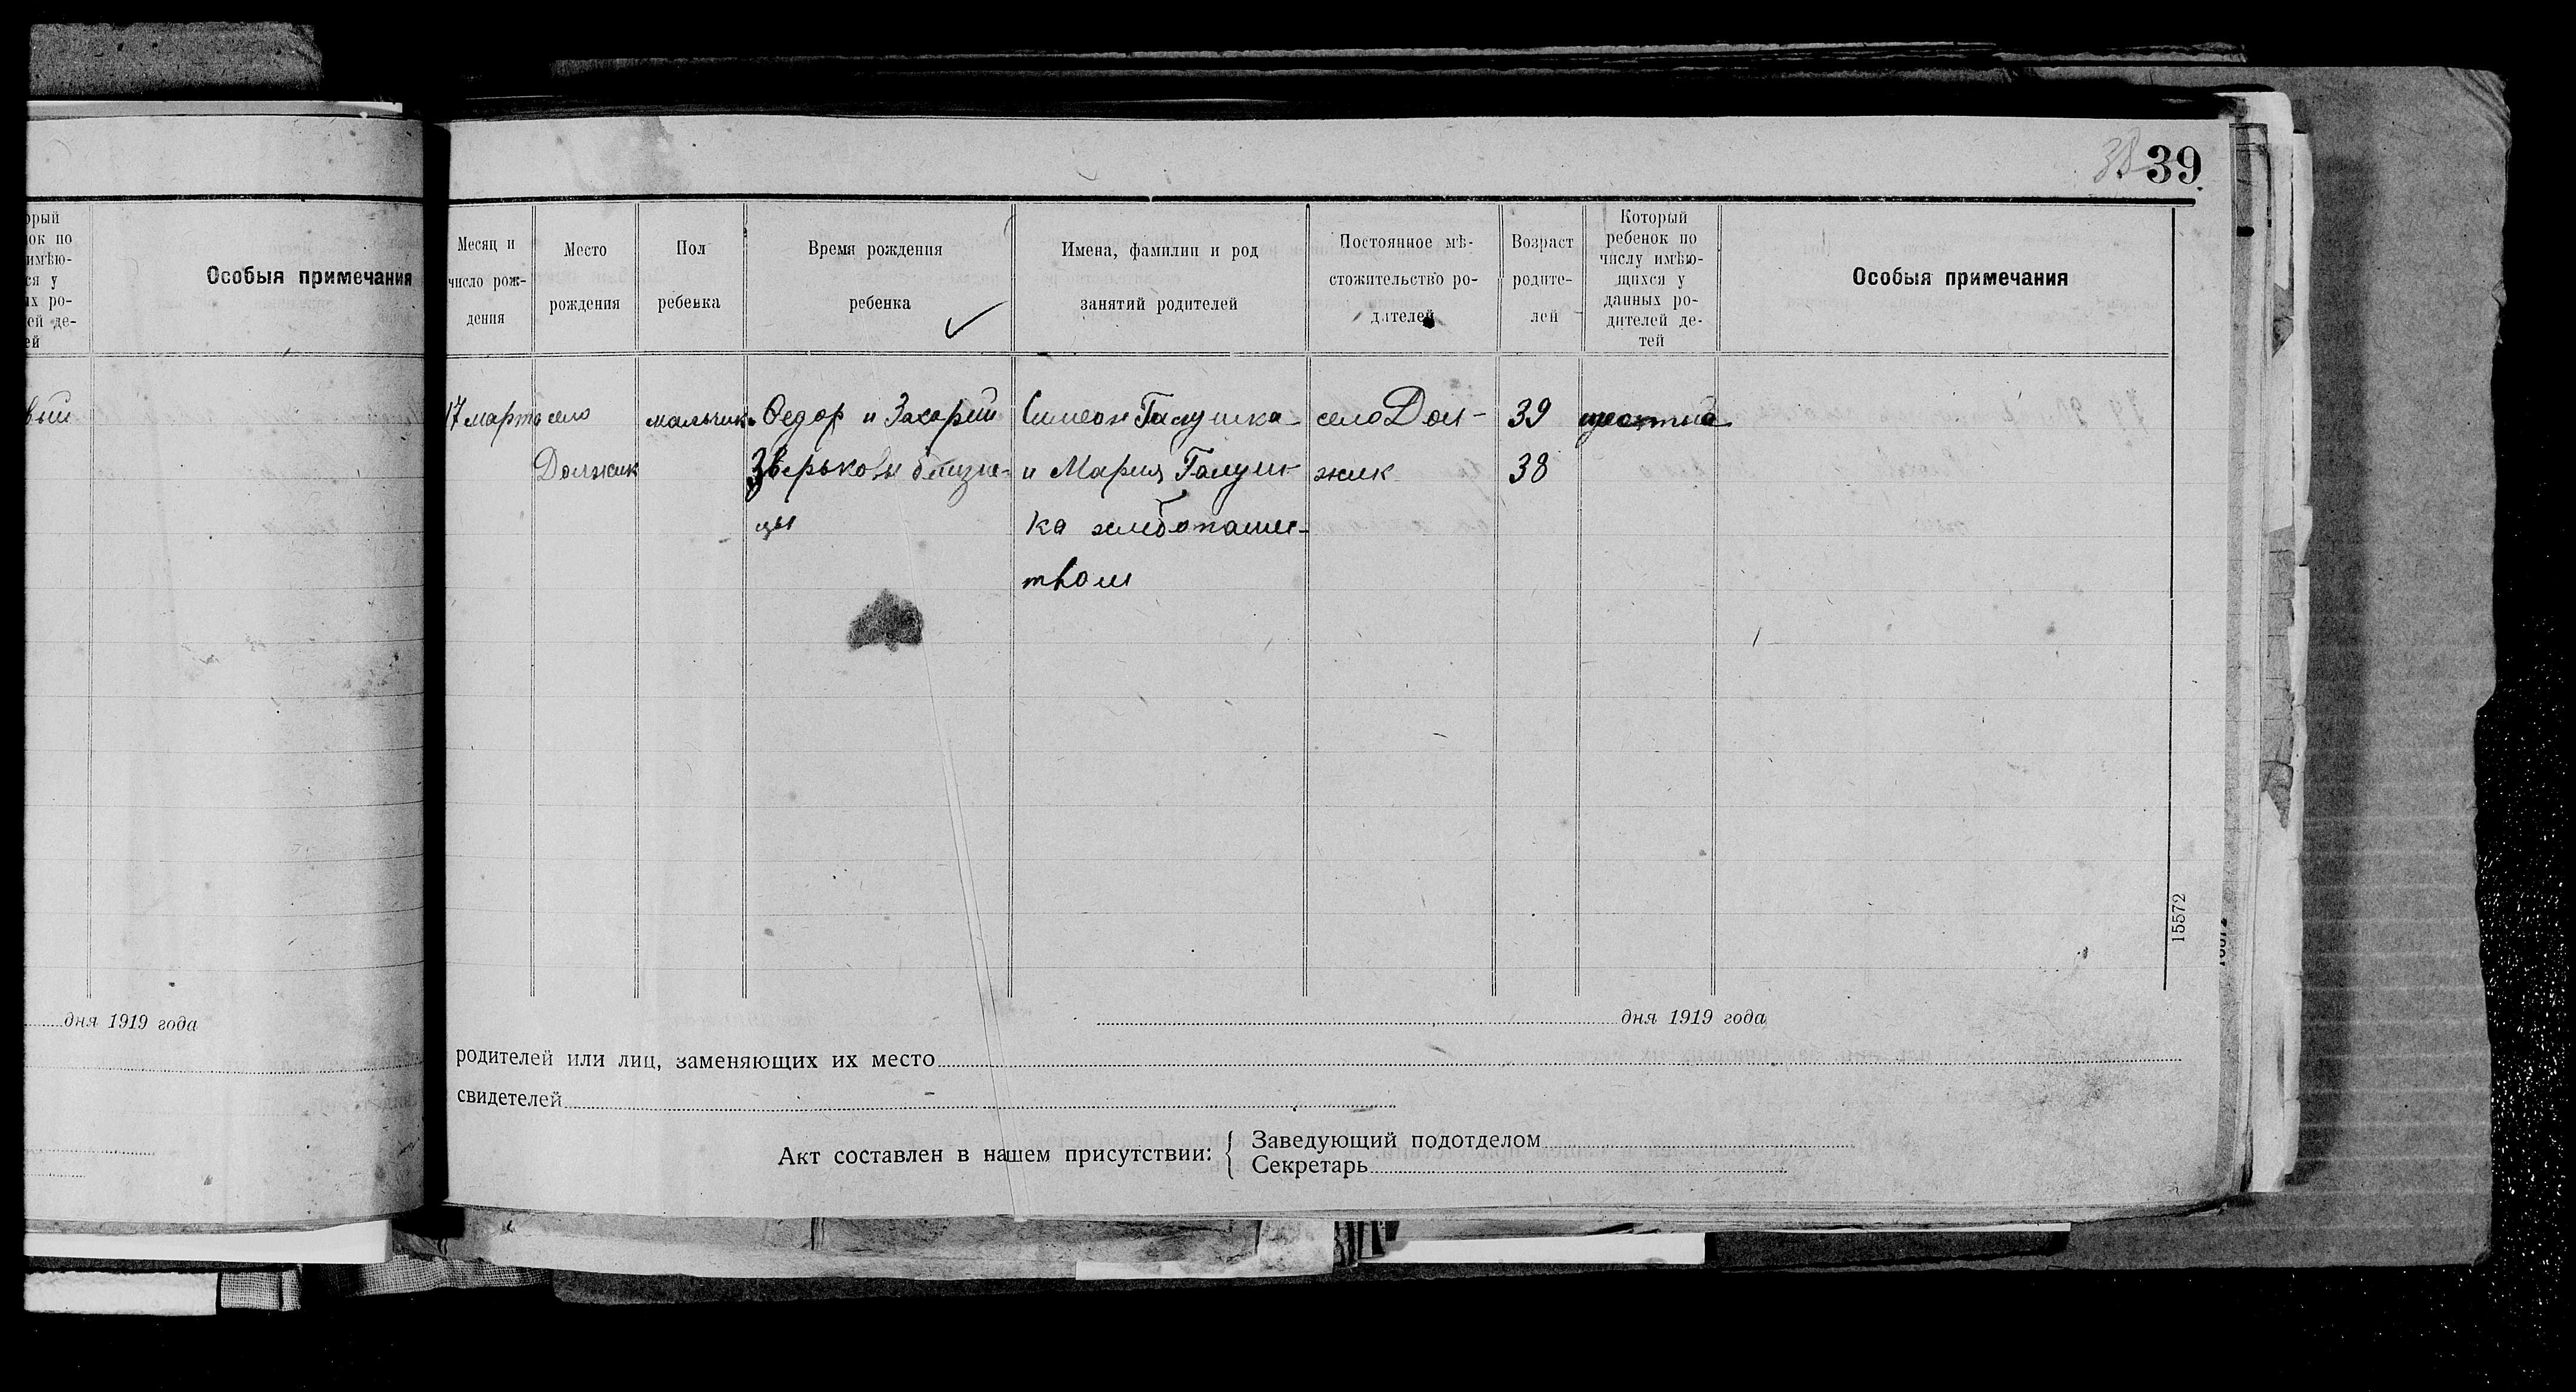 38 39
орый
ок по
имѣю-
ся у
ых ро-
ей де-
ей
Особыя примечания
вый
дня 1919 года
Месяц и
число рож-
дения
Место
рождения
Пол
ребенка
Время рождения
ребенка
Имена, фамилии и род
занятий родителей
Постоянное мѣ-
стожительство ро-
дителей
Возраст
родите-
лей
Который
ребенок по
числу имѣю-
щихся у
данных ро-
дителей де-
тей
Особыя примечания
17 март село мальчик Федор и Захарий Симеон Галушка село Дол- 39 шестый
Должик близне- и Мария Галуш- жик 38
цы ка хлебопашес-
твом
15572
дня 1919 года
родителей или лиц, заменяющих их место
свидетелей
Акт составлен в нашем присутствии: { Заведующий подотделом
Секретарь